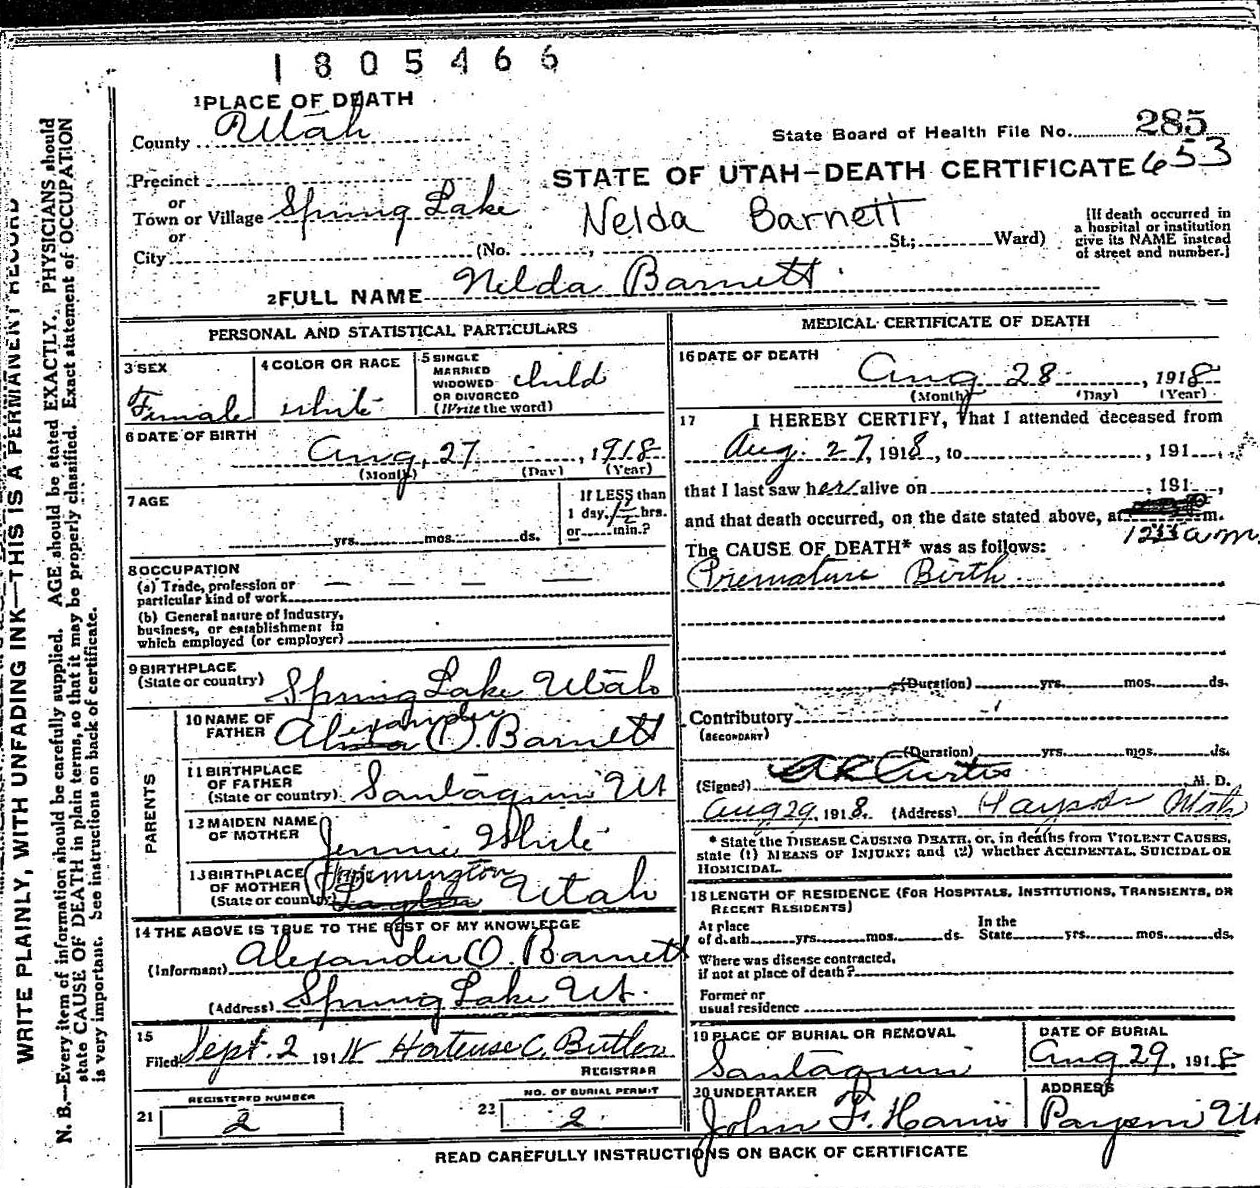 1805466
1 PLACE OF DEATH
County Utah
State Board of Health File No. 285
STATE OF UTAH—DEATH CERTIFICATE 653
Precinct
or
Town or Village Spring Lake
Nelda Barnett
or
City (No. , St.; Ward)
[If death occurred in
a hospital or institution
give its NAME instead
of street and number.]
2 FULL NAME Nelda Barnett
PERSONAL AND STATISTICAL PARTICULARS
3 SEX
Female
4 COLOR OR RACE
white
5 SINGLE
MARRIED
WIDOWED
OR DIVORCED
(Write the word)
child
6 DATE OF BIRTH
Aug, 27, 1918
(Month) (Day) (Year)
7 AGE
yrs. mos. ds.
If LESS than
1 day, hrs.
or min.?
8 OCCUPATION
(a) Trade, profession or
particular kind of work
(b) General nature of industry,
business, or establishment in
which employed (or employer)
9 BIRTHPLACE
(State or country) Spring Lake Utah
PARENTS
10 NAME OF
FATHER
Alexander O. Barnett
11 BIRTHPLACE
OF FATHER
(State or country) Santaquin Ut
12 MAIDEN NAME
OF MOTHER
Jennie White
13 BIRTHPLACE
OF MOTHER
(State or country) Utah
14 THE ABOVE IS TRUE TO THE BEST OF MY KNOWLEDGE
(Informant) Alexander O. Barnett
(Address) Spring Lake Ut.
15
Filed Sept. 2 191 Hortense C. Butler
REGISTRAR
REGISTERED NUMBER
21 2
NO. OF BURIAL PERMIT
22 2
MEDICAL CERTIFICATE OF DEATH
16 DATE OF DEATH
Aug 28, 1918
(Month) (Day) (Year)
17 I HEREBY CERTIFY, That I attended deceased from
Aug. 27, 1918, to , 191
that I last saw her alive on , 191 ,
and that death occurred, on the date stated above, at m.
a m.
The CAUSE OF DEATH* was as follows:
Premature Birth
(Duration) yrs. mos. ds.
Contributory
(SECONDARY)
(Duration) yrs. mos. ds.
(Signed) Curtis M. D.
Aug 29, 1918. (Address) Payson Utah
* State the DISEASE CAUSING DEATH, or, in deaths from VIOLENT CAUSES,
state (1) MEANS OF INJURY; and (2) whether ACCIDENTAL, SUICIDAL OR
HOMICIDAL.
18 LENGTH OF RESIDENCE (FOR HOSPITALS, INSTITUTIONS, TRANSIENTS, OR
RECENT RESIDENTS)
At place
of death yrs. mos. ds.
In the
State yrs. mos. ds.
Where was disease contracted,
if not at place of death?
Former or
usual residence
19 PLACE OF BURIAL OR REMOVAL
Santaquin
DATE OF BURIAL
Aug 29, 1918
20 UNDERTAKER
John F. Harris
ADDRESS
Payson Ut
READ CAREFULLY INSTRUCTIONS ON BACK OF CERTIFICATE
WRITE PLAINLY, WITH UNFADING INK—THIS IS A PERMANENT RECORD
N. B.—Every item of information should be carefully supplied. AGE should be stated EXACTLY. PHYSICIANS should
state CAUSE OF DEATH in plain terms, so that it may be properly classified. Exact statement of OCCUPATION
is very important. See instructions on back of certificate.